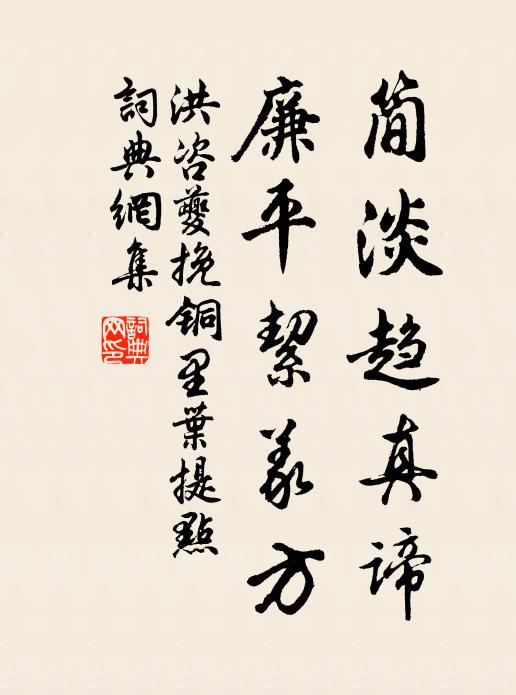 簡淡趨真諦
廉平絜義方
洪咨夔挽銅里葉提點
詞典網集
詞典網印